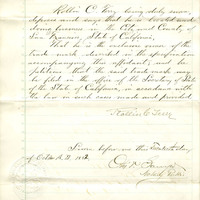 Rollin C. being duly sworn,
deposes and says that he is a resident and
doing business in the City and County of
San Francisco, State of California,
That he is the exclusive owner of the
trade mark described in the specification
accompanying this affidavit; and he
petitions that the said trade mark may
be filed in the office of the Secretary of State
of the State of California, in accordance with
the law in such cases made and provided
Rollin C.
Sworn before me this
of October A.D.